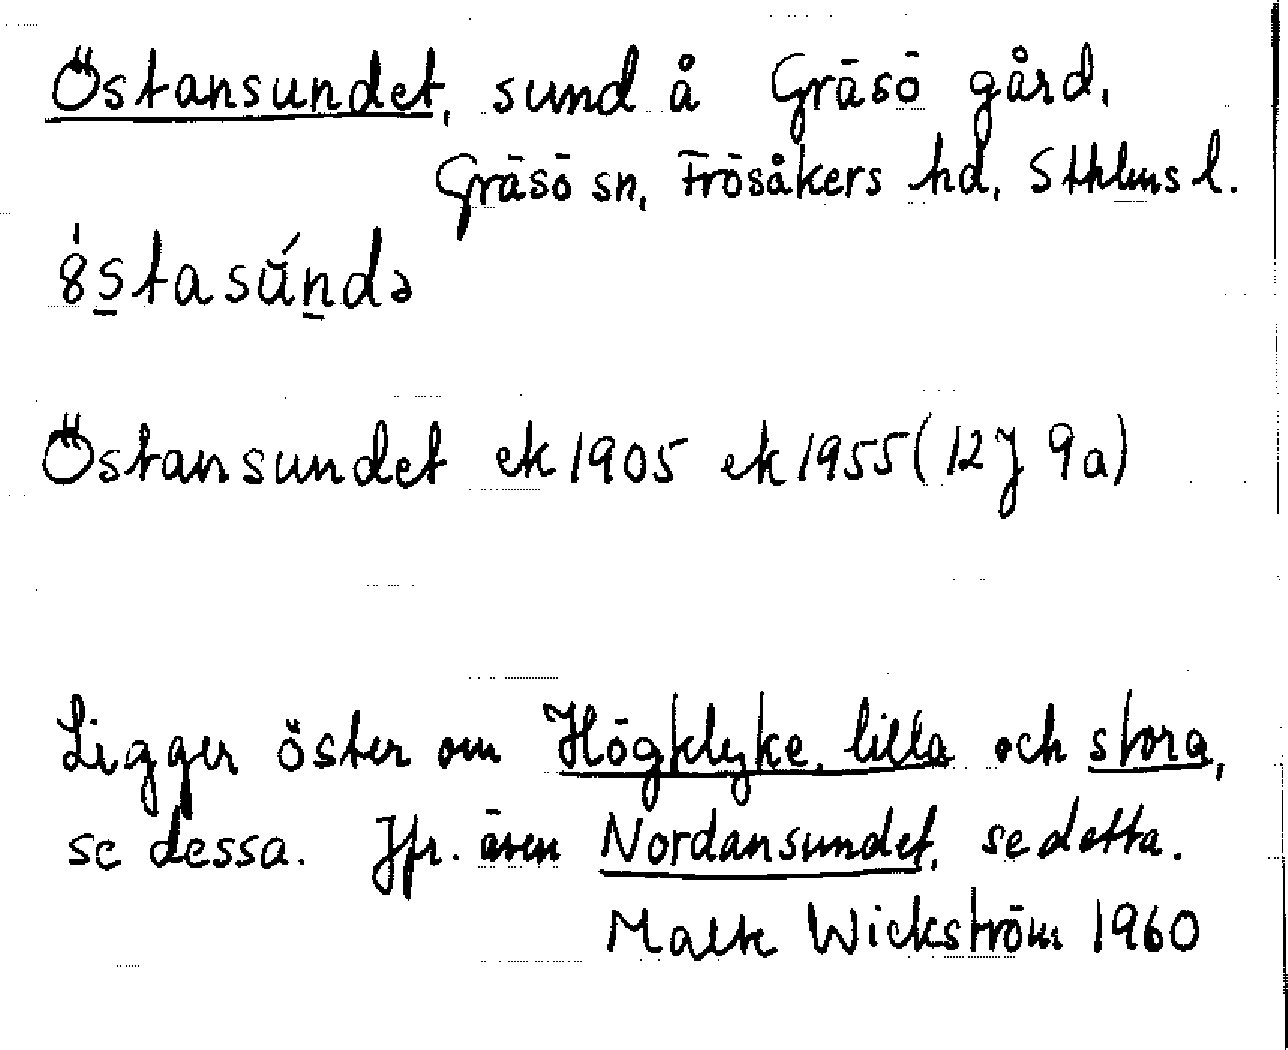 Östansundet, sund å Gräsö gård,
Gräsö sn, Frösåkers hd, Sthlms l.
8̍s̲tasŭ́n̲də
Östansundet ek 1905 ek 1955 (12J 9a)
Ligger öster om Högklyke, lilla och stora,
se dessa. Jfr. även Nordansundet, se detta.
Malte Wickström 1960